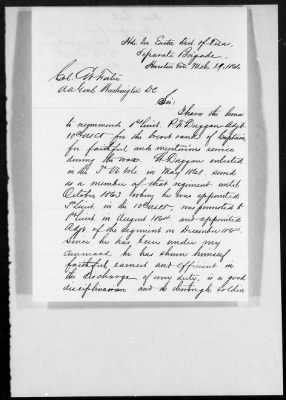 Hd. Qrs Easter Dist of Texas
Separate Brigade
Houston Mch. 19. 1866
Col.
AAGenl Washington DC
Sir:
I have the honor
to recommend 1st Lieut. P. H. Duggan Adjt.
10th USCT for the brevet rank of Captain
for faithful and meritorious service
during the war. Lt. Duggan enlisted
in the 3d Vt Vols. in May 1861. served
as a member of that regiment until
October 1863 when he was appointed
2d Lieut. in the 10th USCT was promoted to
1st Lieut. in August 1864 and appointed
Adjt. of the Regiment in December 1864.
Since he has been under my
command he has shown himself
faithful, earnest and efficient in
the discharge of every duty, is a good
disciplinarian and a thorough soldier